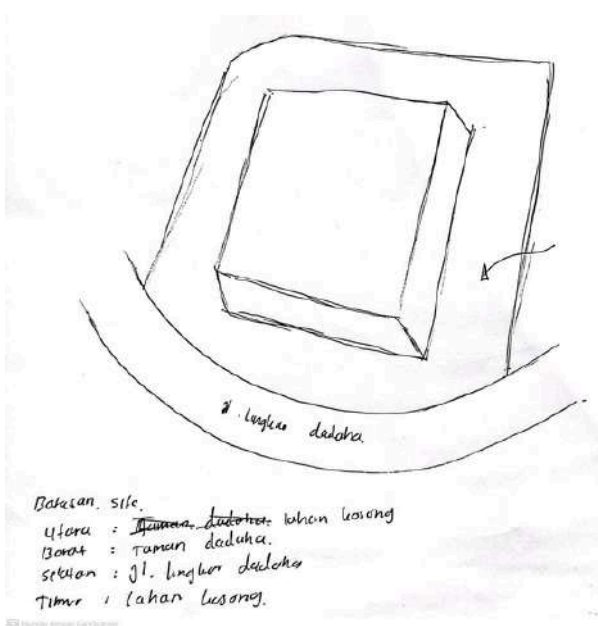 Jl. lingkar dadaha
Batasan site.
Utara : Taman dadaha lahan kosong
Barat : Taman dadaha.
selatan : Jl. lingkar dadaha
Timur : Lahan kosong.